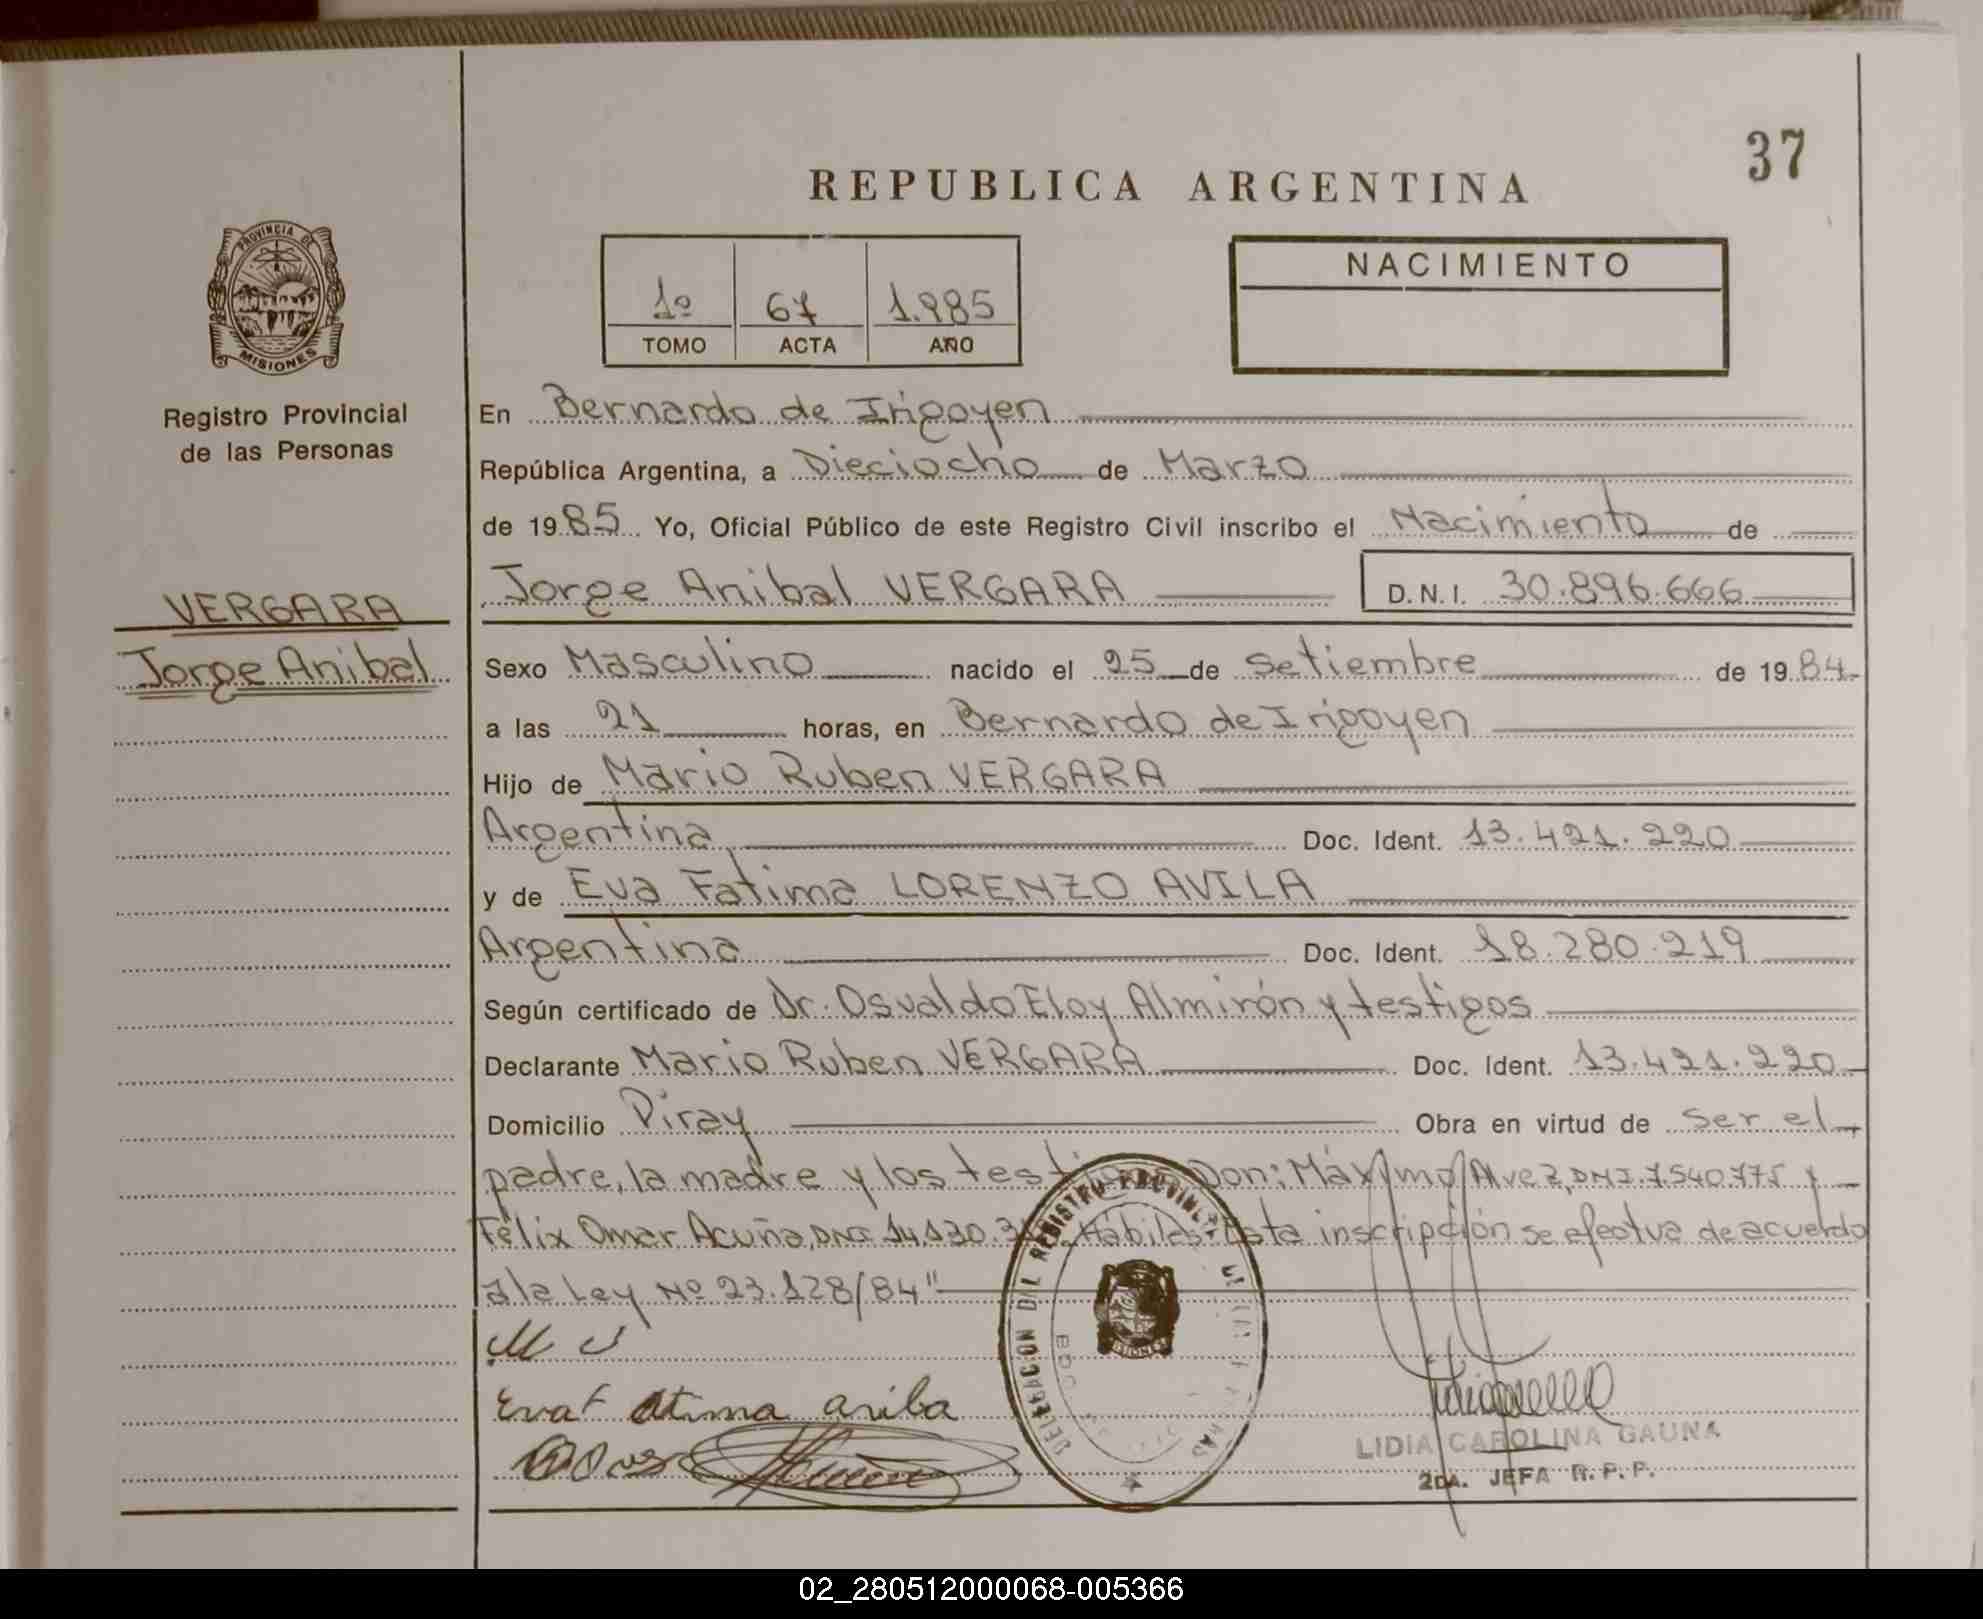 37
REPUBLICA ARGENTINA
PROVINCIA DE
MISIONES
Registro Provincial
de las Personas
1º 67 1.985
TOMO ACTA AÑO
NACIMIENTO
En Bernardo de Irigoyen
República Argentina, a Dieciocho de Marzo
de 1985 Yo, Oficial Público de este Registro Civil inscribo el Nacimiento de
Jorge Anibal VERGARA D.N.I. 30.896.666
VERGARA
Jorge Anibal
Sexo Masculino nacido el 25 de Setiembre de 1984
a las 21 horas, en Bernardo de Irigoyen
Hijo de Mario Ruben VERGARA
Argentina Doc. Ident. 13.421.220
y de Eva Fatima LORENZO AVILA
Argentina Doc. Ident. 18.280.219
Según certificado de Dr. Osvaldo Eloy Almirón y testigos
Declarante Mario Ruben VERGARA Doc. Ident. 13.421.220
Domicilio Piray Obra en virtud de ser el
padre, la madre y los Don: Máximo Alvez, DNI. 7.540.775 y
Félix Omar Acuña, DNI 14.130. Hábiles. Esta inscripción se efectua de acuerdo
a la Ley Nº 23.128/84"
Eva Fatima
DELEGACION DEL REGISTRO PROVINCIAL
MISIONES
LIDIA CAROLINA GAUNA
2DA. JEFA R.P.P.
02_280512000068-005366